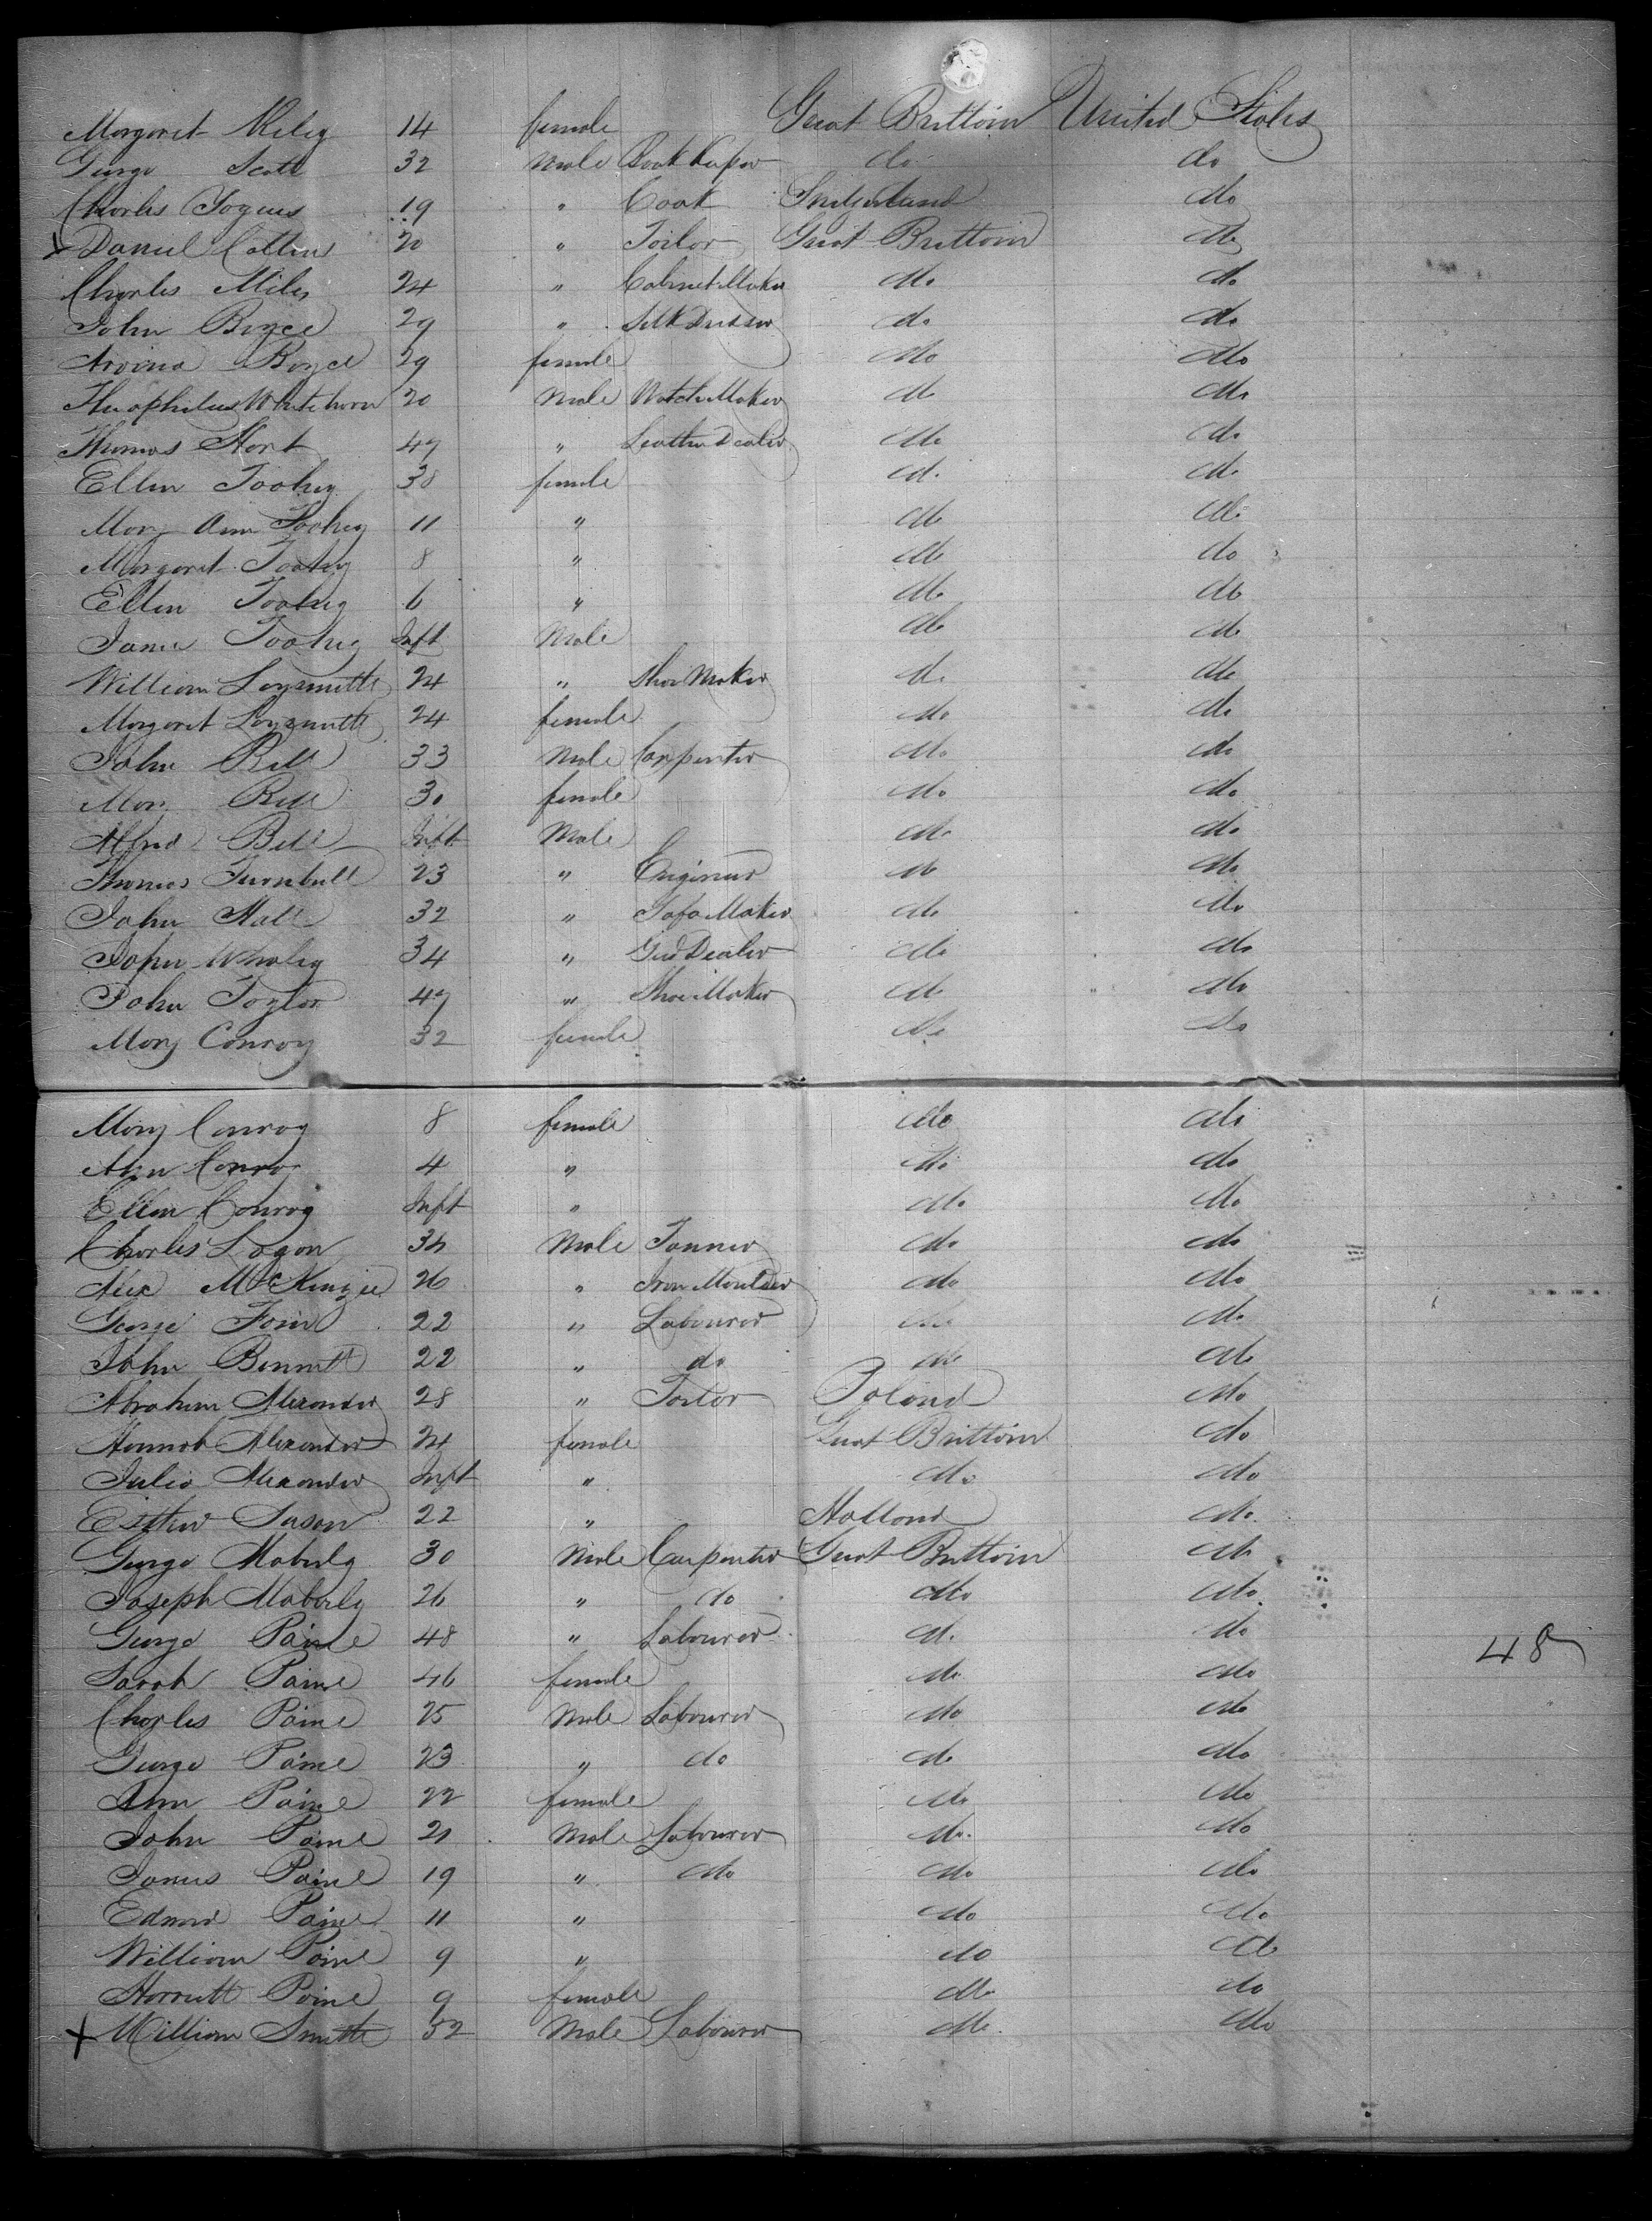 Margaret Riley 14 female Great Brittain United States
George Scott 32 Male Book Keeper do do
Charles 19 " Cook Switzerland do
X Daniel Collins 20 " Tailor Great Brittain do
Charles Miles 24 " Cabinet Maker do do
John Boyce 29 " Silk Dresser do do
Boyce 29 female do do
Theophilus Whitehorn 20 Male Watch Maker do do
Thomas Hort 47 " Leather Dealer do do
Ellen Toohey 38 female do do
Mary Ann Toohey 11 " do do
Margaret Toohey 8 " do do
Ellen Toohey 6 " do do
Toohey Inft Male do do
William 24 " Shoe Maker do do
Margaret 24 female do do
John Bell 33 Male Carpenter do do
Mary Bell 30 female do do
Alfred Bell Inft Male do do
Thomas Turnbull 23 " Engineer do do
John Hall 32 " Sofa Maker do do
John Whaley 34 " Dealer do do
John Taylor 47 " Shoe Maker do do
Mary Conroy 32 female do do
Mary Conroy 8 female do do
Ann Conroy 4 " do do
Ellen Conroy Inft " do do
Charles Logan 34 Male Tanner do do
Alex McKenzie 26 " Iron Moulder do do
George 22 " Labourer do do
John Bennett 22 " do do do
Abraham Alexander 28 " Tailor Poland do
Hannah Alexander 24 female Great Brittain do
Julia Alexander Inft " do do
Esther Sason 22 " Holland do
George Moberly 30 Male Carpenter Great Brittain do
Joseph Moberly 26 " do do do
George Paine 48 " Labourer do do
48
Sarah Paine 46 female do do
Charles Paine 25 Male Labourer do do
George Paine 23 " do do do
Ann Paine 22 female do do
John Paine 21 Male Labourer do do
James Paine 19 " do do do
Edward Paine 11 " do do
William Paine 9 " do do
Harriett Paine 9 female do do
X William Smith 32 Male Labourer do do